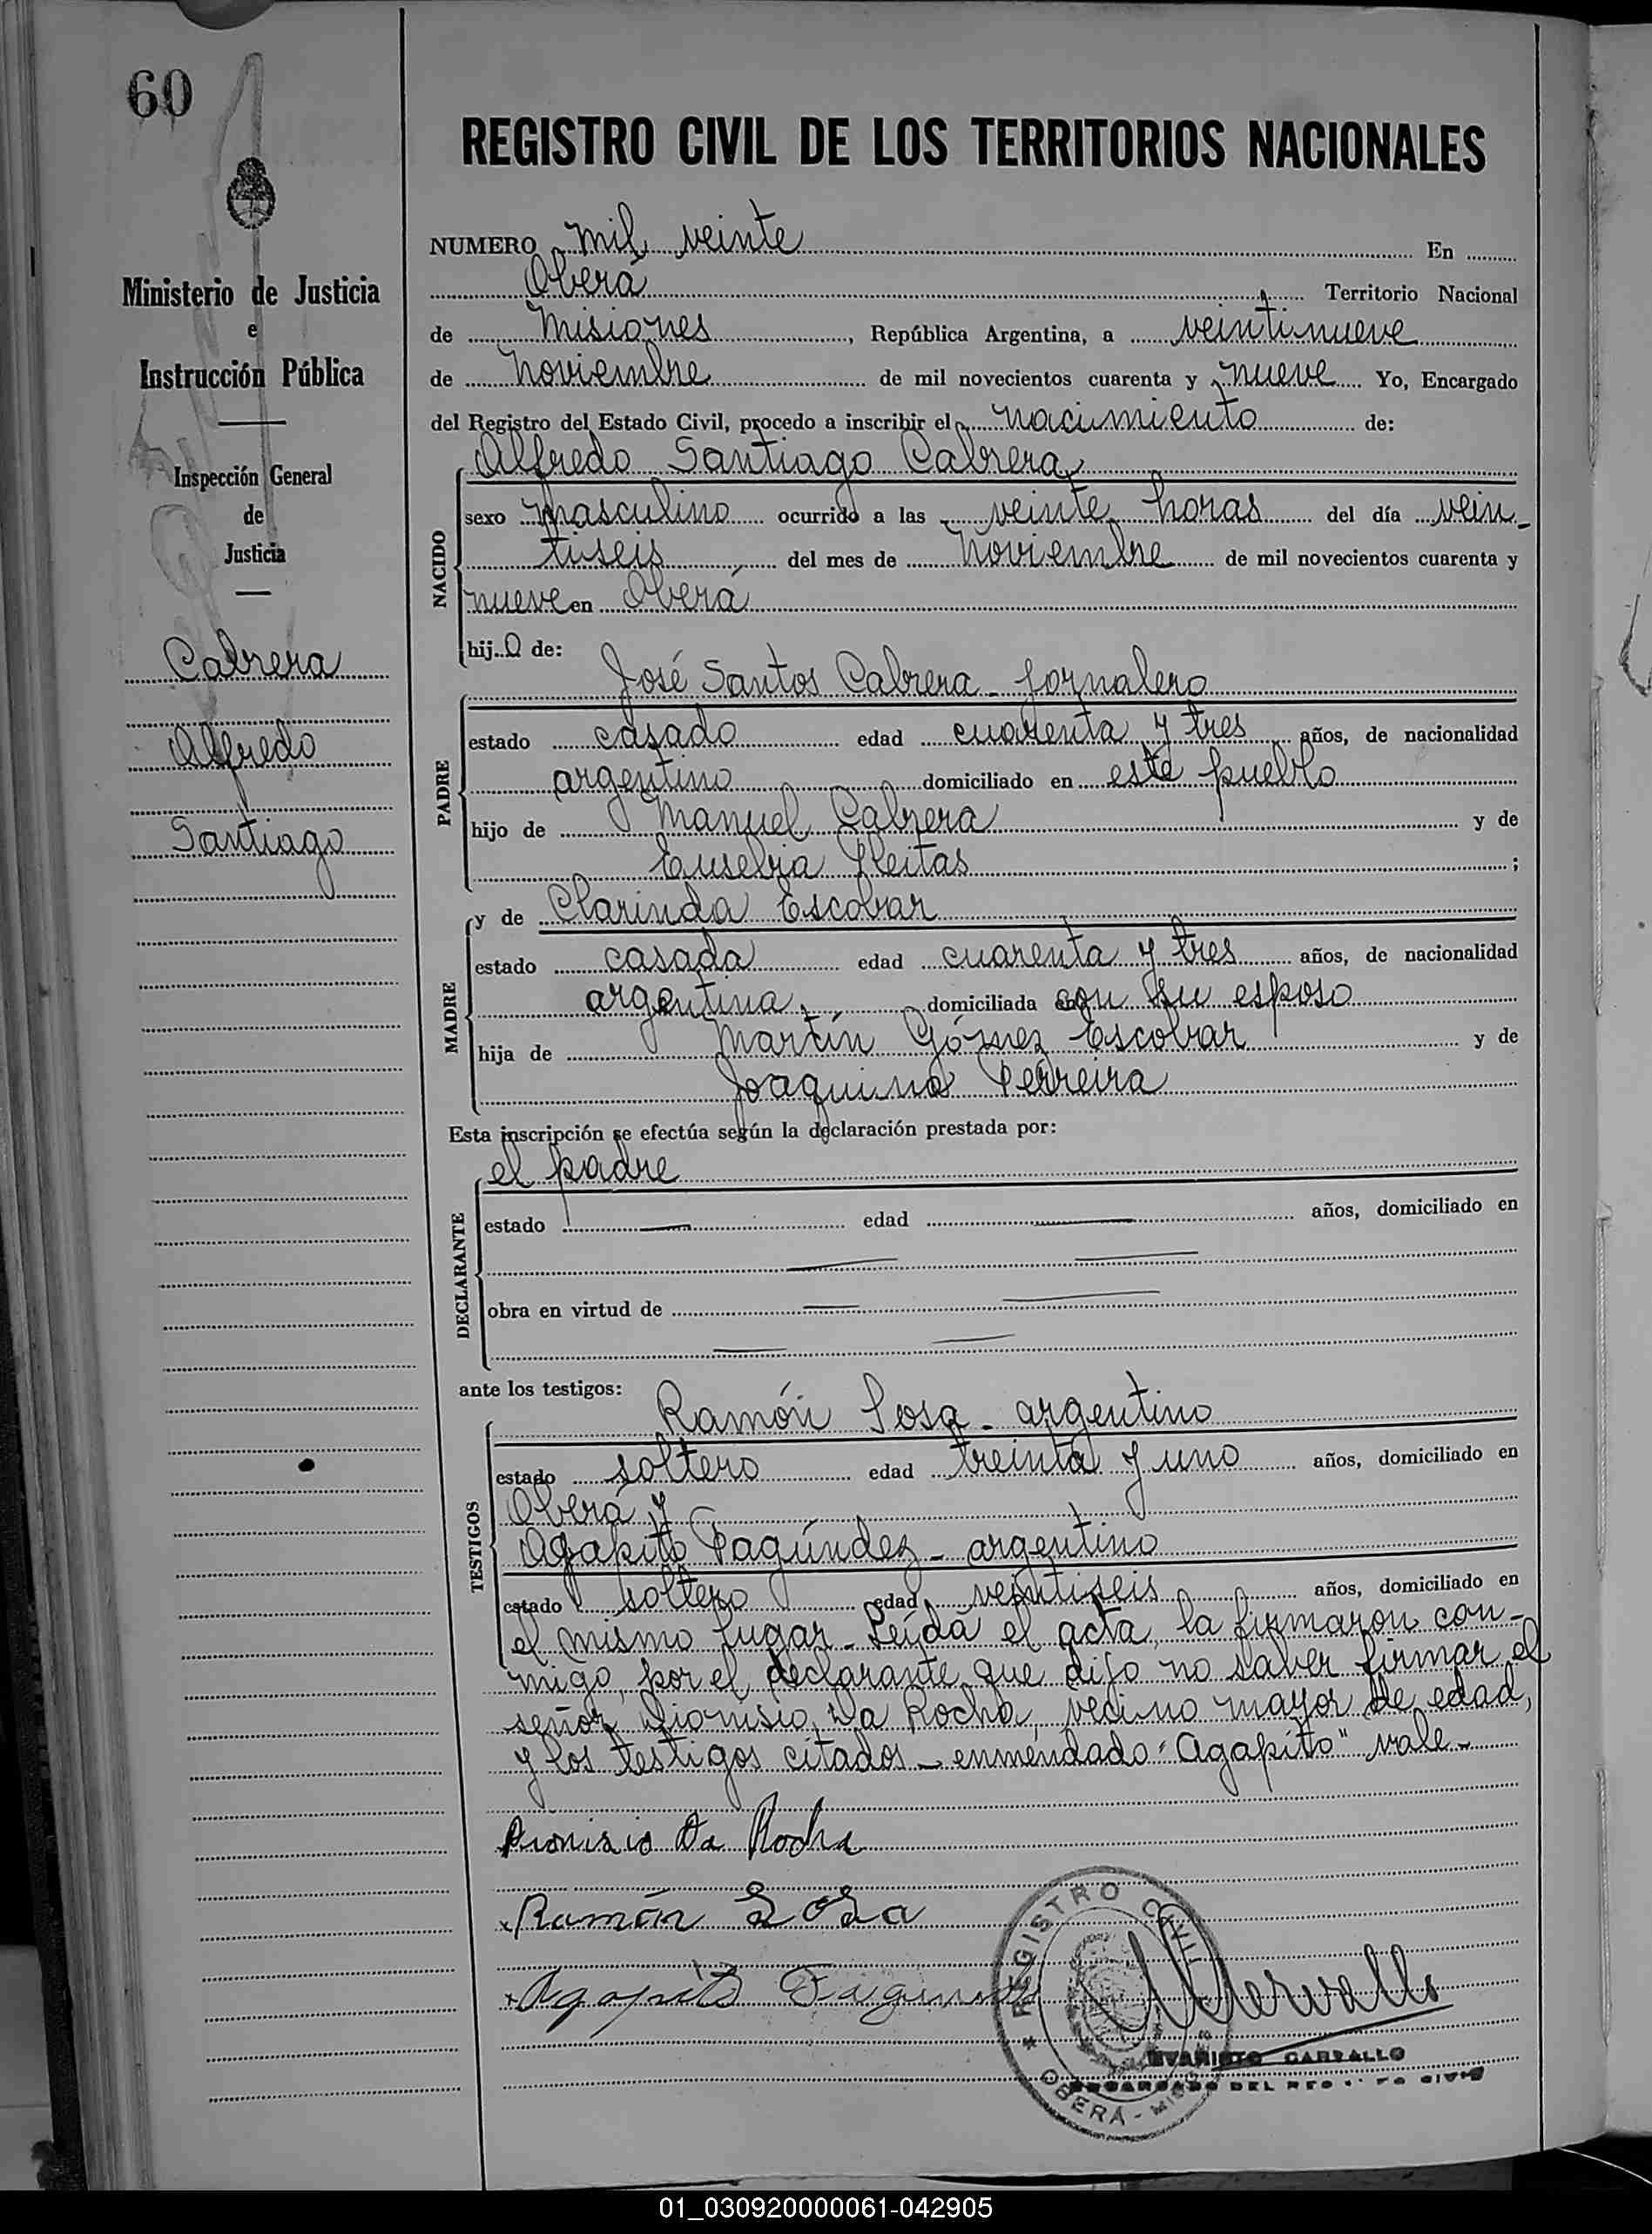 60
Ministerio de Justicia
e
Instrucción Pública
Inspección General
de
Justicia
Cabrera
Alfredo
Santiago
REGISTRO CIVIL DE LOS TERRITORIOS NACIONALES
NUMERO mil veinte En
Oberá Territorio Nacional
de Misiones, República Argentina, a veintinueve
de noviembre de mil novecientos cuarenta y nueve Yo, Encargado
del Registro del Estado Civil, procedo a inscribir el nacimiento de:
Alfredo Santiago Cabrera
NACIDO
sexo masculino ocurrido a las veinte horas del día vein-
tiseis del mes de noviembre de mil novecientos cuarenta y
nueve en Oberá
hijo de:
José Santos Cabrera - jornalero
PADRE
estado casado edad cuarenta y tres años, de nacionalidad
argentino domiciliado en este pueblo
hijo de Manuel Cabrera y de
Eusebia Fleitas ;
y de Clarinda Escobar
MADRE
estado casada edad cuarenta y tres años, de nacionalidad
argentina domiciliada con su esposo
hija de Martín Gómez Escobar y de
Joaquina Ferreira
Esta inscripción se efectúa según la declaración prestada por:
el padre
DECLARANTE
estado edad años, domiciliado en
obra en virtud de
ante los testigos:
Ramón Sosa - argentino
TESTIGOS
estado soltero edad treinta y uno años, domiciliado en
Oberá y
Agapito Fagúndez - argentino
estado soltero edad veintiseis años, domiciliado en
el mismo lugar - Leída el acta, la firmaron con-
migo, por el declarante que dijo no saber firmar el
señor Dionisio Da Rocha, vecino mayor de edad,
y los testigos citados - enmendado "Agapito" vale -
Dionisio Da Rocha
Ramón Sosa
Agapito Fagundez
REGISTRO CIVIL
OBERÁ - MIS
EVARISTO CARVALLO
ENCARGADO DEL REGISTRO CIVIL
01_030920000061-042905